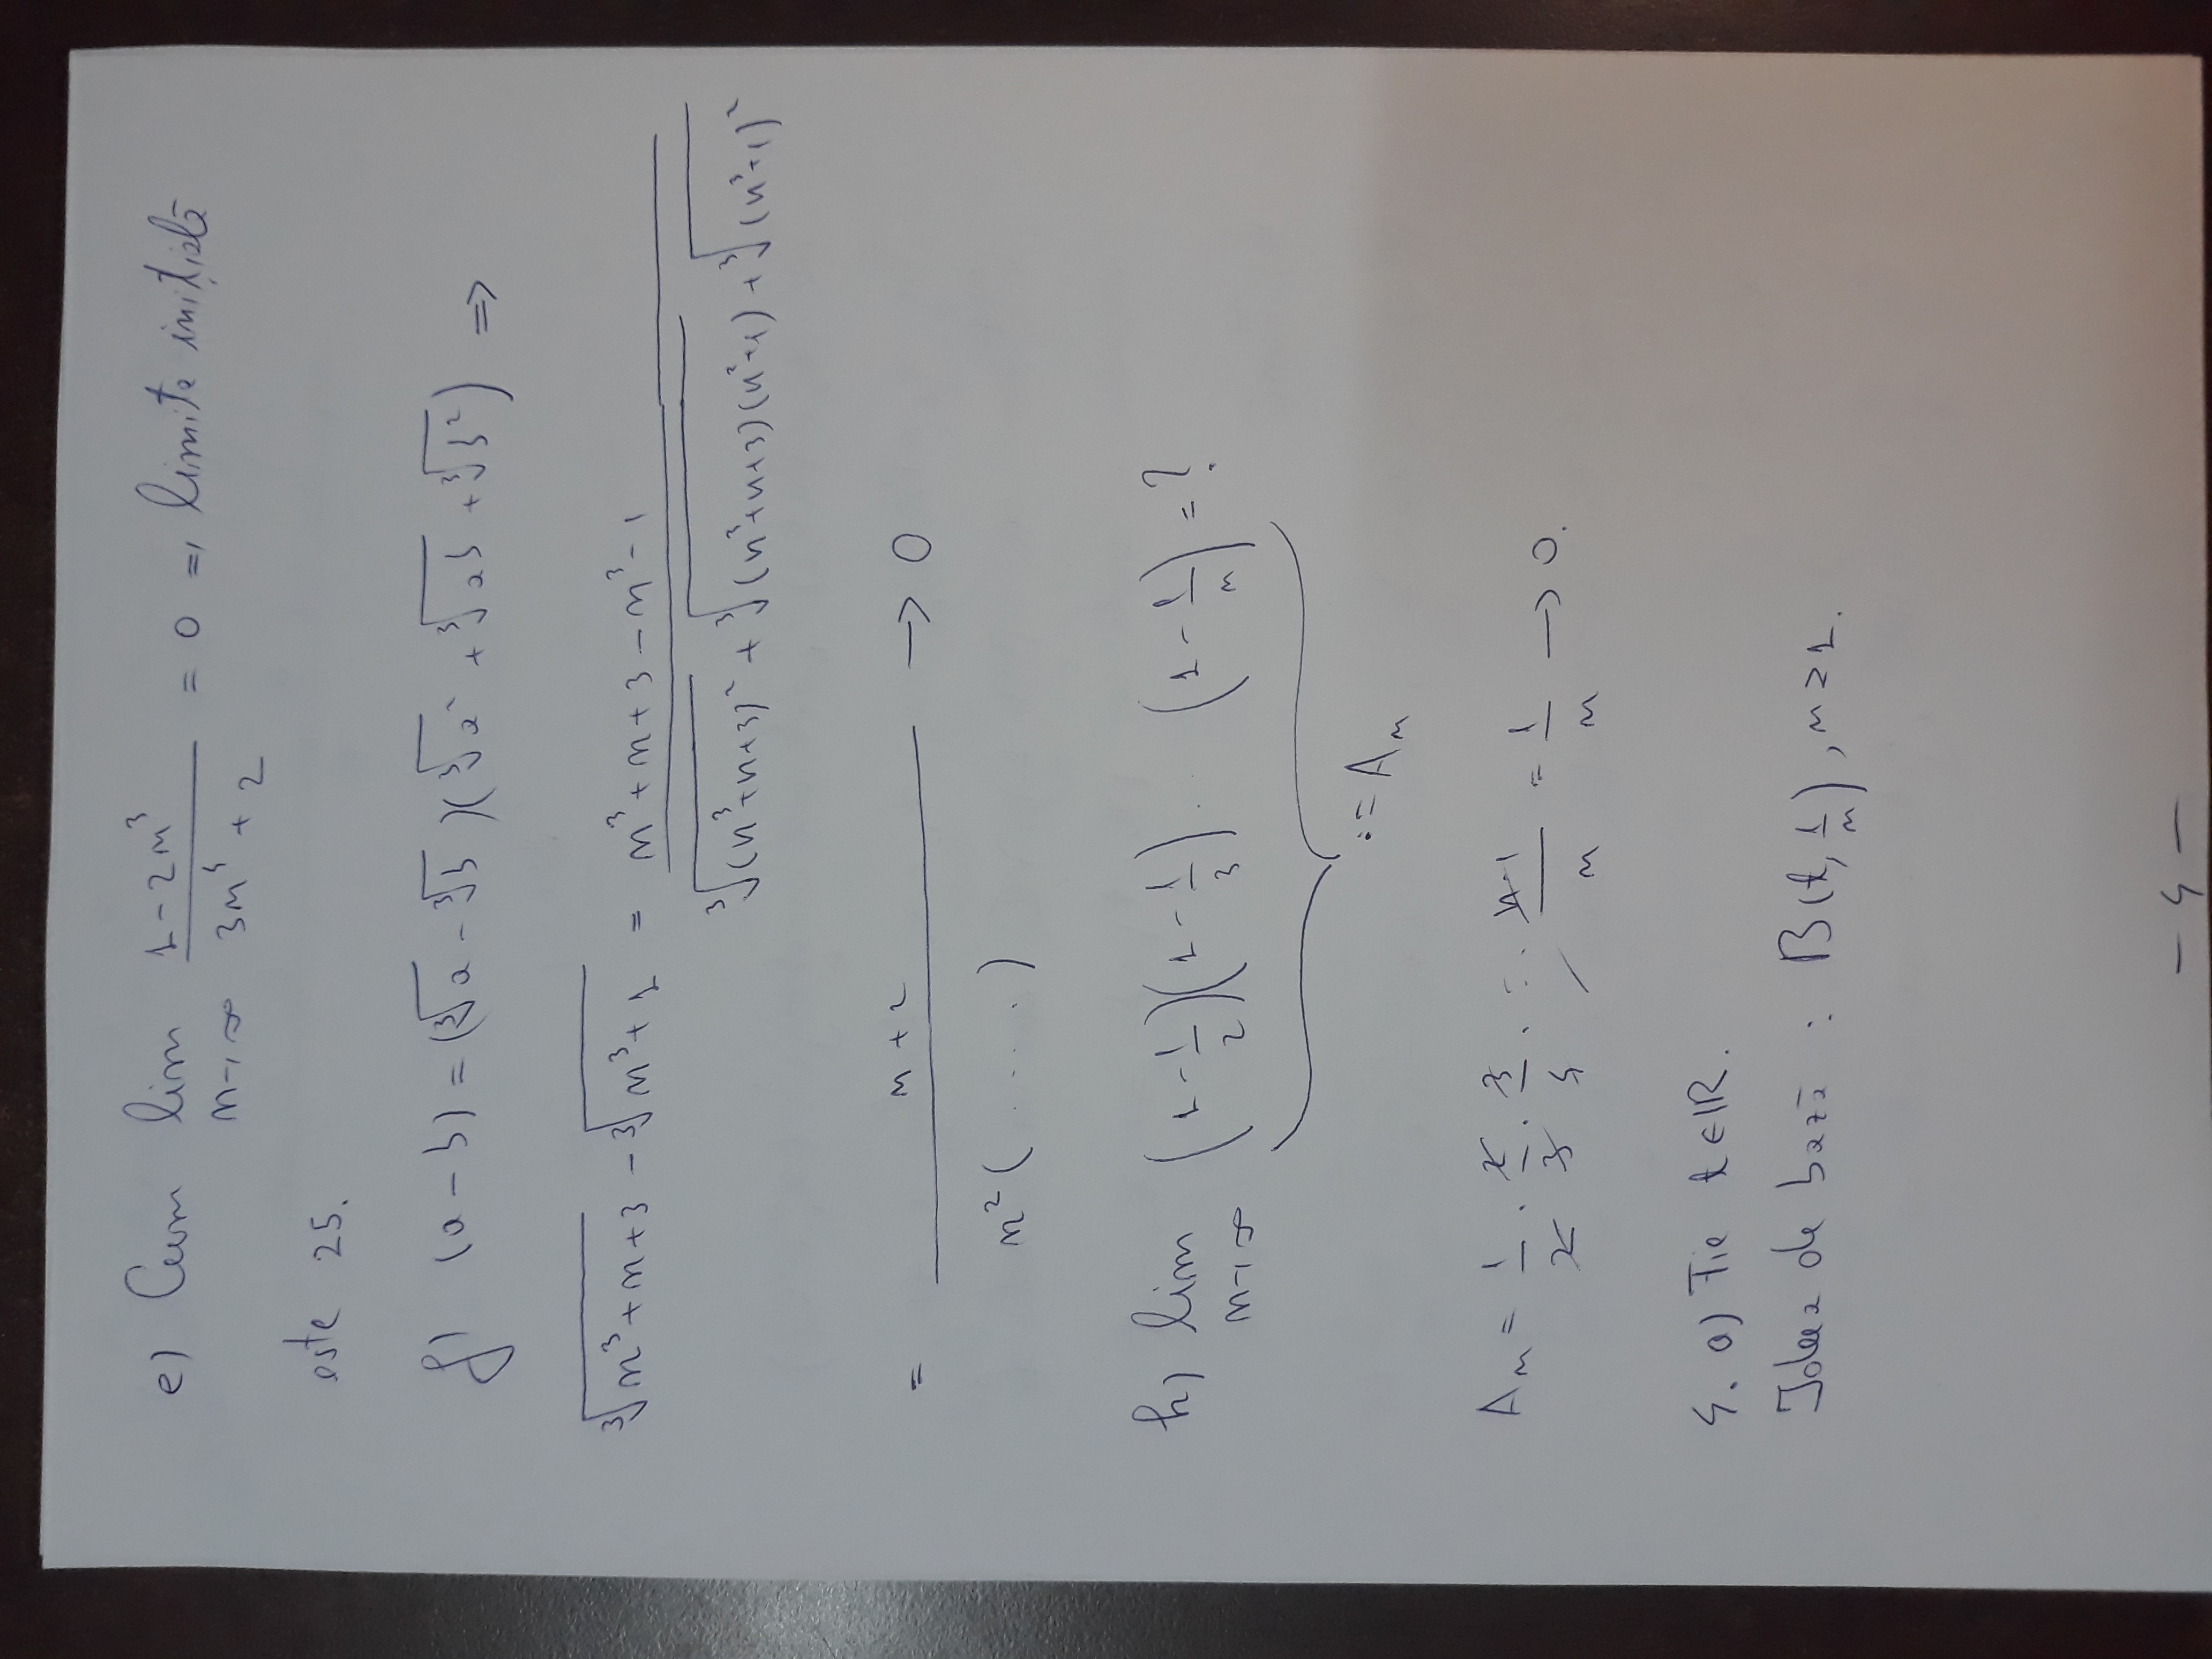 e) Cum lim_{n→∞} (1-2n³)/(3n⁴+2) = 0 ⇒ limita inițială
este 25.
f) (a-b) = (∛a - ∛b)(∛a² + ∛ab + ∛b²) ⇒
∛(n³+n+3) - ∛(n³+1) = (n³+n+3-n³-1)/(∛(n³+n+3)² + ∛(n³+n+3)(n³+1) + ∛(n³+1)²)
= (n+2)/(n²(.....)) → 0
h) lim_{n→∞} (1-1/2)(1-1/3)... (1-1/n) = ?
:= Aₙ
Aₙ = 1/2 · 2/3 · 3/4 · ... · (n-1)/n = 1/n → 0.
4. a) Fie t∈ℝ.
Ideea de bază : B(t, 1/n), n≥1.
- 4 -